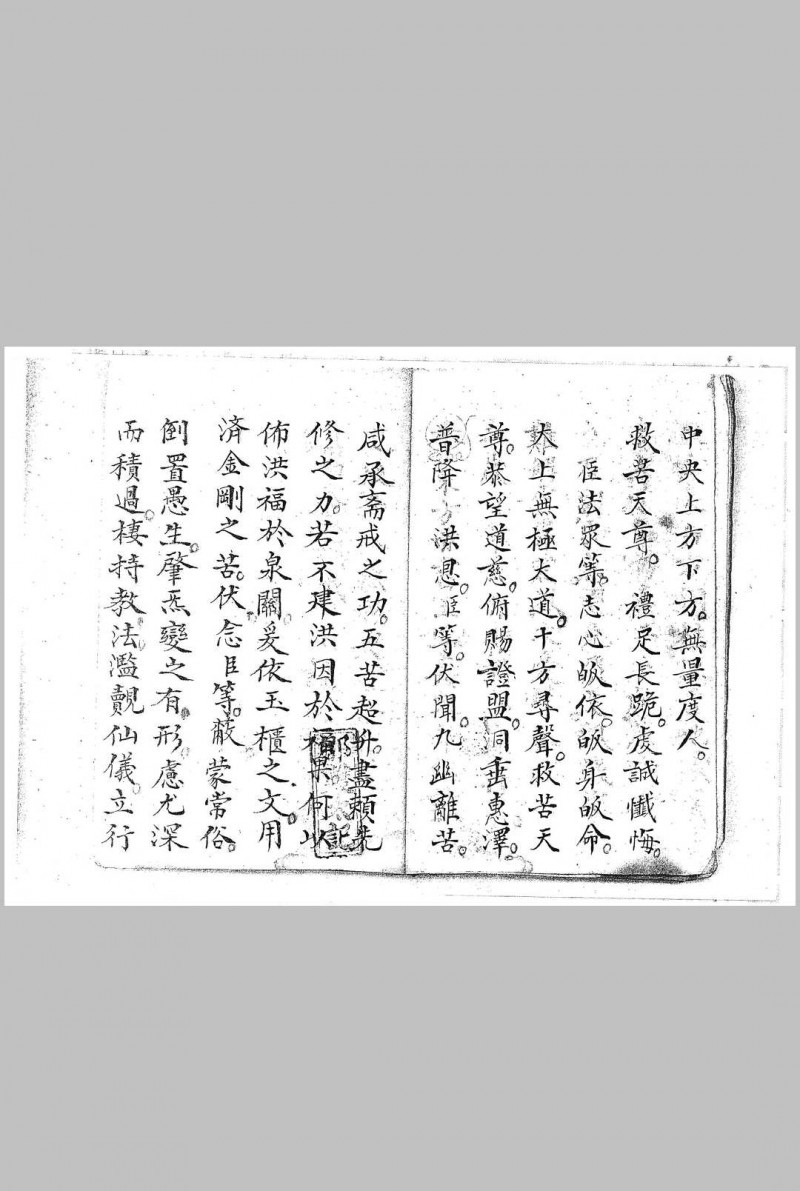 中央上方下方。無量度人。
救苦天尊。禮足長跪。虔誠懺悔。
臣法眾等。志心皈依。皈身皈命。
太上無極大道。十方尋聲。救苦天
尊。恭望道慈。俯賜證盟。洞垂惠澤。
普降洪恩。臣等。伏聞。九幽離苦。
咸承斋戒之功。五苦超升。盡賴先
修之力。若不建洪因於果何以
佈洪福於泉關。爰依玉櫃之文。用
済金剛之苦。伏念臣等。蔽蒙常俗。
倒置愚生。肇炁變之有形。慮尤深
而積過。棲持教法濫覿仙儀。立行
記